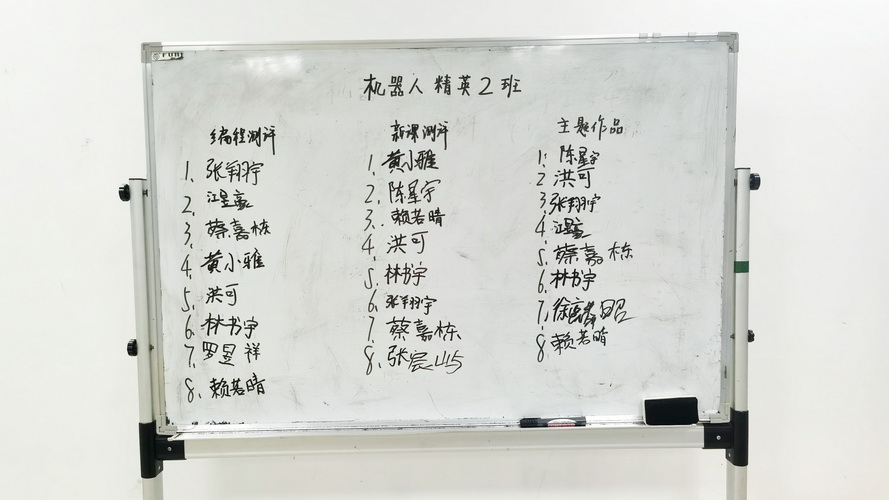 机器人 精英2班
编程测评
1. 张翔宇
2.
3. 蔡嘉栋
4. 黄小雅
5. 洪可
6. 林书宇
7. 罗昱祥
8. 赖若晴
新课测评
1. 黄小雅
2. 陈星宇
3. 赖若晴
4. 洪可
5. 林书宇
6. 张翔宇
7. 蔡嘉栋
8. 张宸
主题作品
1: 陈星宇
2 洪可
3. 张翔宇
4.
5. 蔡嘉栋
6. 林书宇
7. 徐
8. 赖若晴